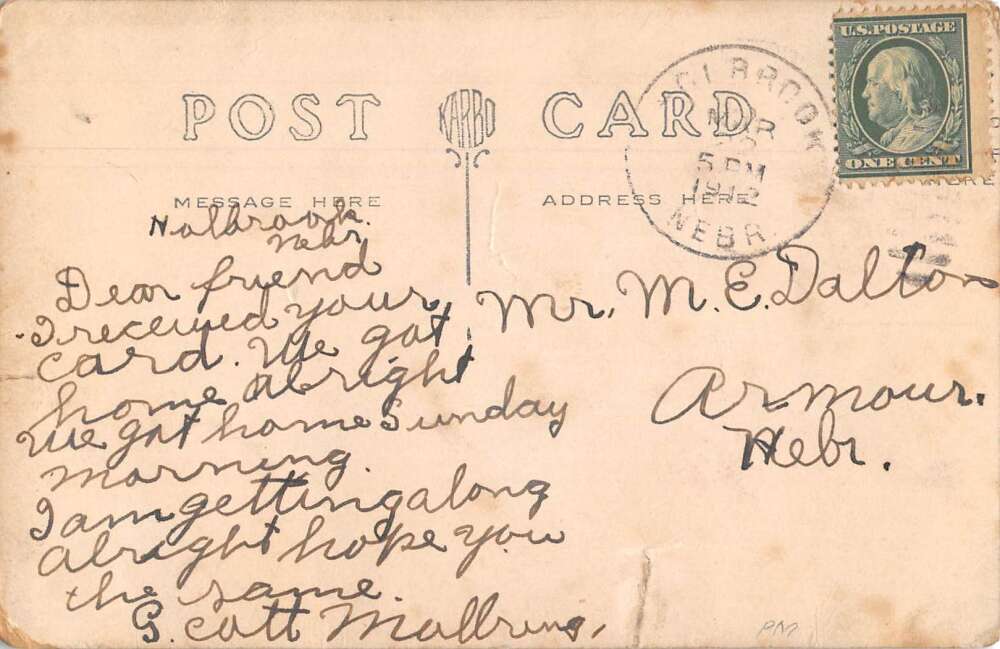 POST CARD
KARBO
MESSAGE HERE
ADDRESS HERE
HOLBROOK
MAR
5 PM
1912
NEBR.
U.S. POSTAGE
ONE CENT
Holbrook.
Nebr
Dear friend
I received your
card. We got
home alright
We got home Sunday
morning.
I am getting along
alright hope you
the same.
S. cott
Mr. M. E. Dalton
Armour.
Nebr.
PM